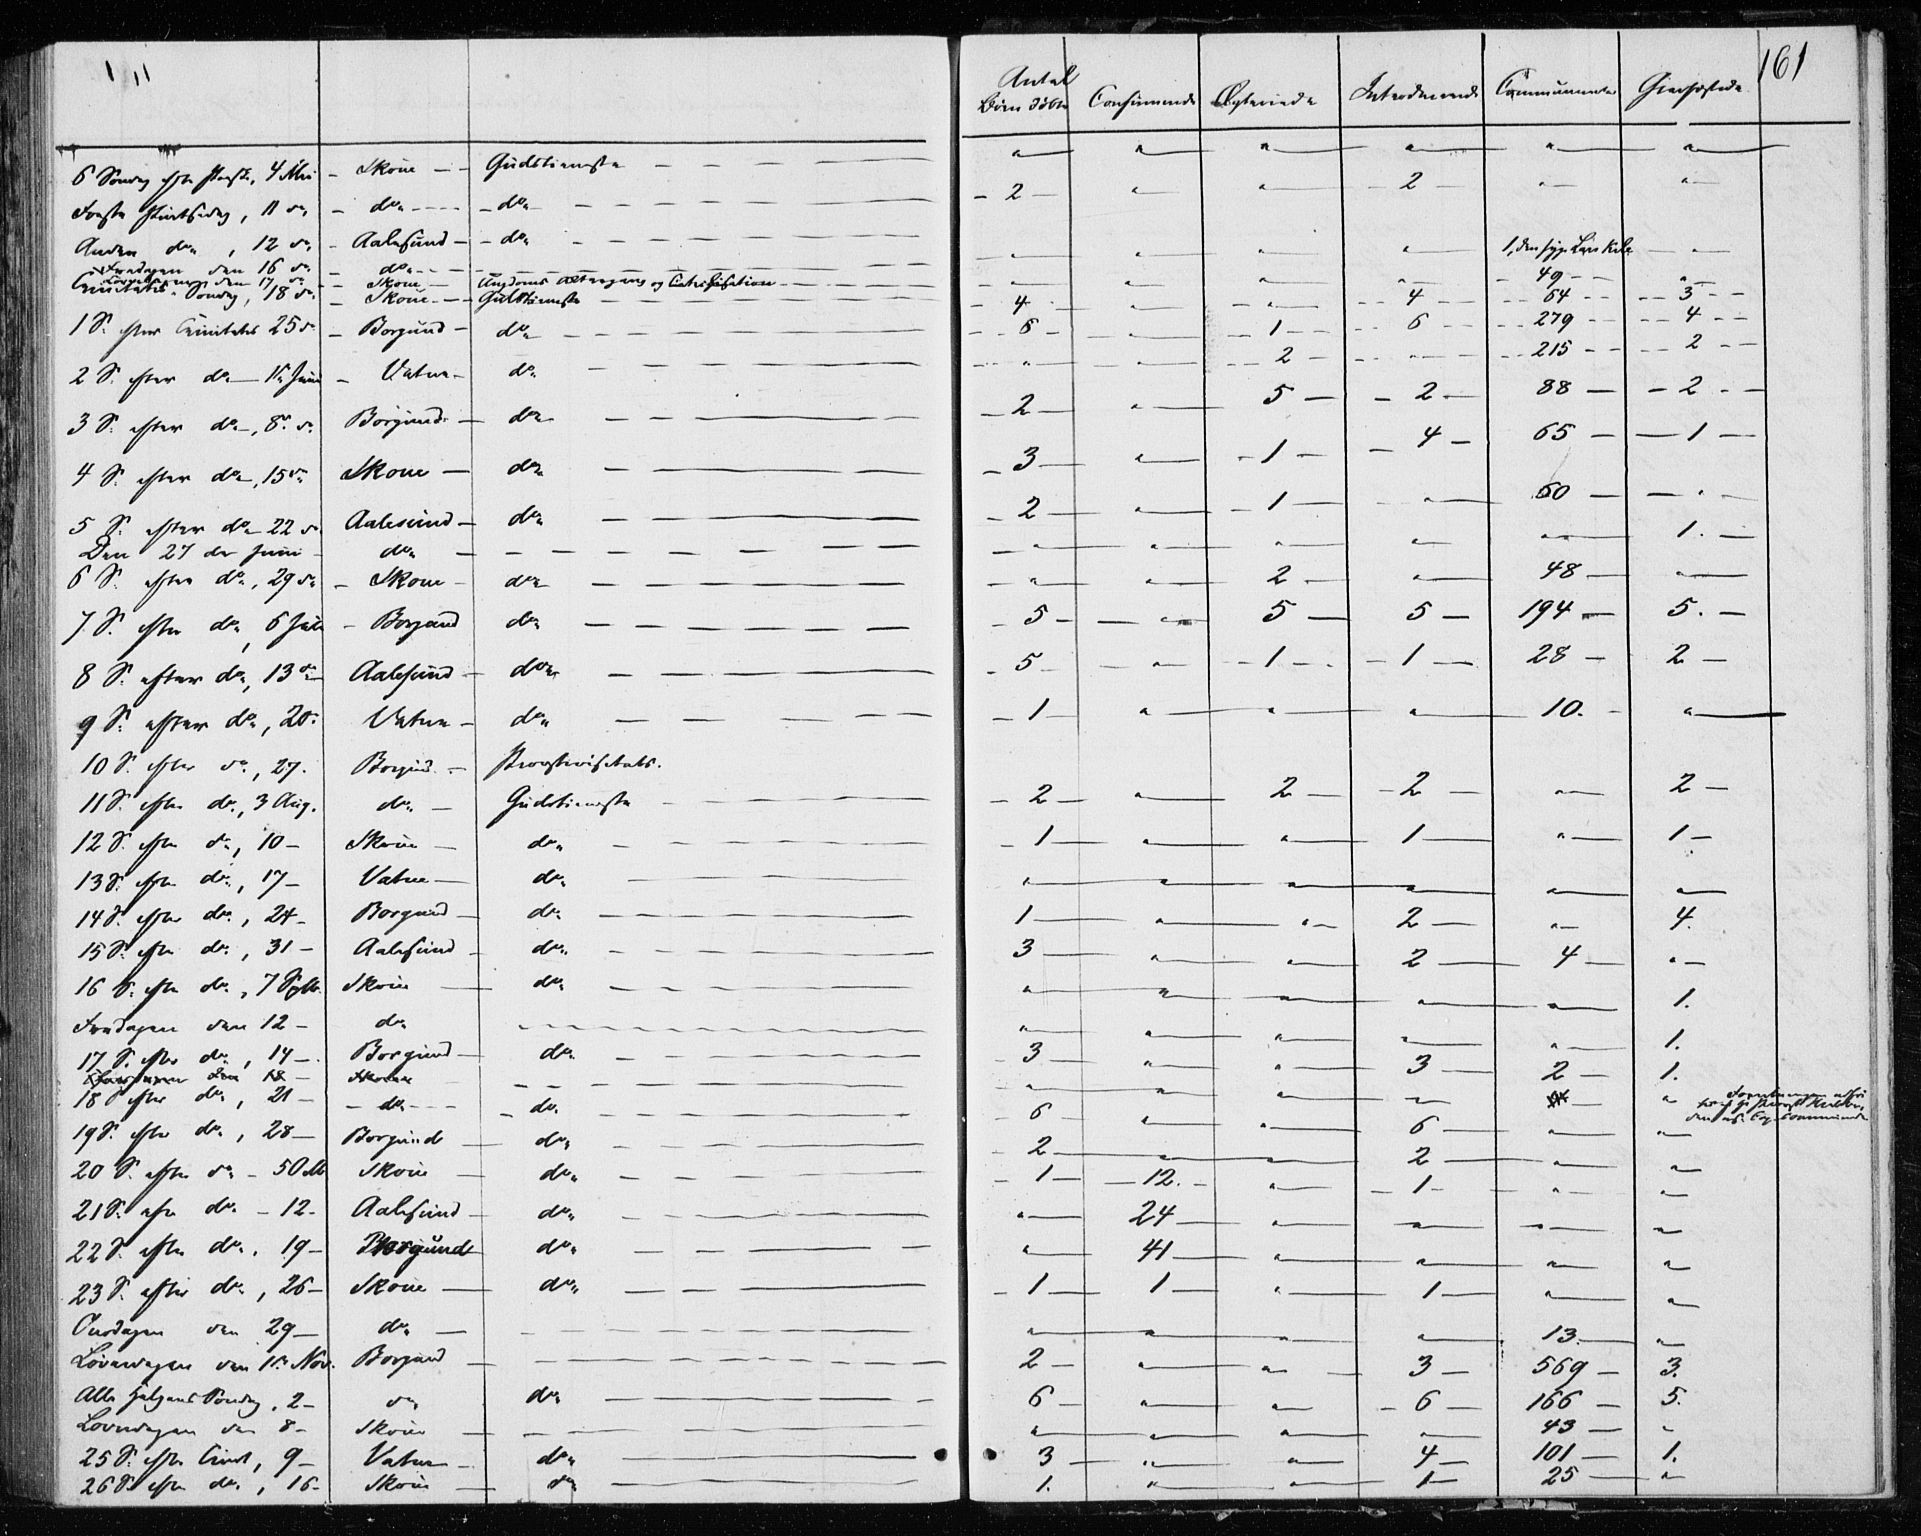 161
Antal Børn døbte Confirmerede Ægteviede Introducerede Communicanter
6 Søndag efter Paaske, 4 Mai - Skoue - Gudstieneste " " " " " "
Første Pintsedag, 11 do - do - do 2 " " 2 " "
Anden do, 12 do - Aalesund - do " " " " 1, den syge
Fredagen den 16 do - do " " " " 49 "
Løverdagen den 17 do - Skoue - Ungdoms og Catechisation
Trinitatis Søndag, 18 do - Skoue - Gudstieneste 4 " " 4 64 3
1 S. efter Trinitatis 25 do - Borgund - do 6 " 1 6 279 4
2 S. efter do 1 Juni - Vatne - do " " 2 " 215 2
3 S. efter do, 8 do Borgund - do 2 " 5 2 88 2
4 S. efter do, 15 do Skoue - do 3 " 1 4 65 1
5 S. efter do 22 do Aalesund - do 2 " 1 " 60 "
Den 27 de Juni do " " " " " 1.
6 S. efter do, 29 do - Skoue - do " " 2 " 48 "
7 S. efter do, 6 Juli - Borgund do 5 " 5 5 194 5.
8 S. efter do, 13 do Aalesund - do 5 " 1 1 28 2
9 S. efter do, 20. Vatne - do 1 " " " 10. "
10 S. efter do, 27. Borgund - Provstevisitats.
11 S. efter do, 3 Aug. do - Gudstieneste 2 " 2 2 " 2
12 S. efter do, 10 - Skoue - do 1 " " 1 " 1
13 S. efter do, 17 - Vatne - do " " " " " "
14 S. efter do, 24 - Borgund - do 1 " " 2 " 4.
15 S. efter do, 31 - Aalesund - do 3 " " 2 4 "
16 S. efter do, 7 Septb. Skoue - do " " " " " 1.
Fredagen den 12 - do " " " " " 1.
17 S. efter do, 14 - Borgund - do 3 " " 3 2 1.
18 S. efter do, 21 - do - do 6 " " 6 " "
19 S. efter do, 28 - Borgund - do 2 " " 2 " "
20 S. efter do - 5 Oct. Skoue - do 1 12. " 1 " "
21 S. efter do - 12. Aalesund - do " 24 " " " "
22 S. efter do, 19 - Borgund do " 41 " " " "
23 S. efter do, 26 - Skoue - do 1 1 " 1 " "
Onsdagen den 29 - do - " " " " 13. "
Løverdagen den 1ste Nov. Borgund - 2 " " 3 569 3.
Alle Helgens Søndag, 2 - do do 6 " " 6 166 5.
Løverdagen den 8 - Skoue - " " " " 43 "
25 S. efter Trinit., 9 - Vatne - do 3 " " 4 101 1.
26 S. efter do, 16 - Skoue - do 1. " " 1 25 "